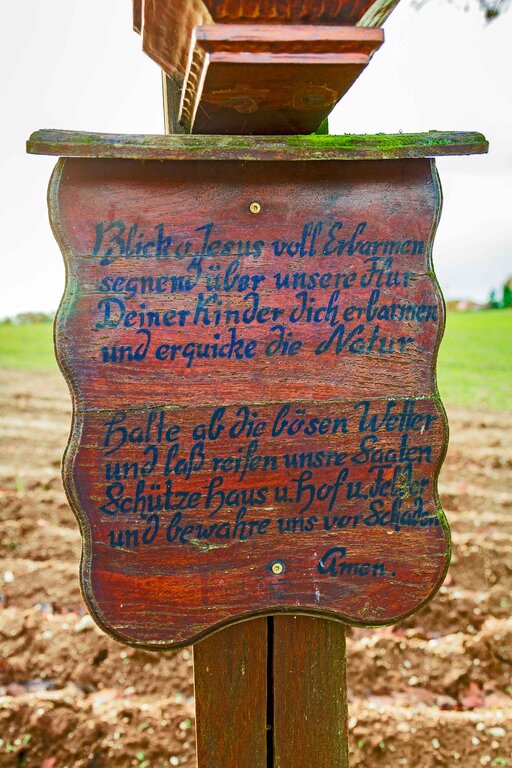 Blick o Jesus voll Erbarmen
segnend über unsere Flur
Deiner Kinder dich erbarmen
und erquicke die Natur
Halte ab die bösen Wetter
und laß reifen unsre Saaten
Schütze Haus u. Hof u. Felder
und bewahre uns vor Schaden
Amen.